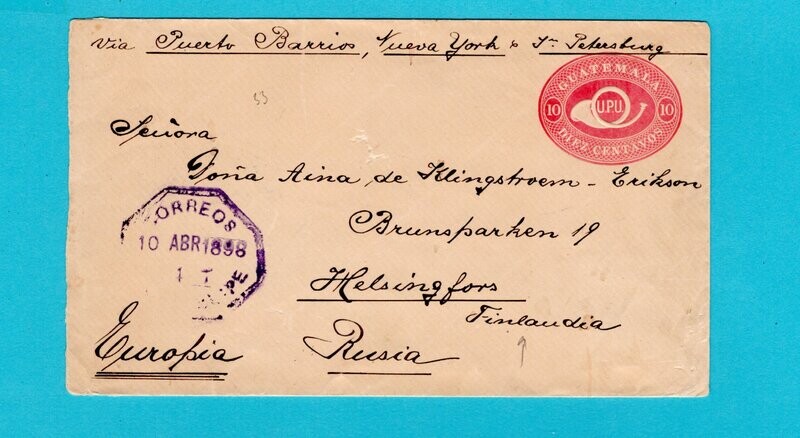 Via Puerto Barrios, Nueva York & Sn Petersburg
GUATEMALA
10 U.P.U. 10
DIEZ CENTAVOS
53
Señora
Doña Aina de Klingstroem - Erikson
Brunsparken 19
Helsingfors
Finlandia
Rusia
Europia
CORREOS
10 ABR 1898